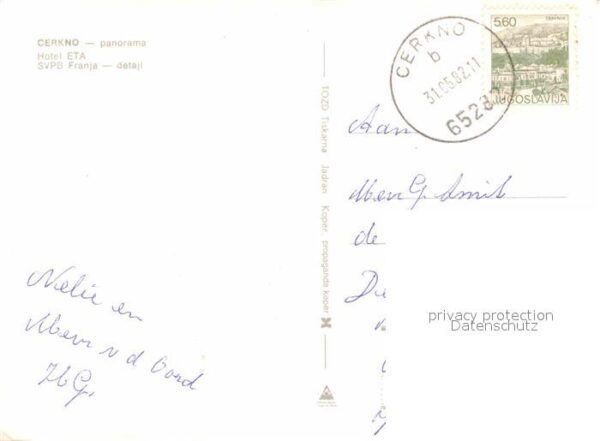 CERKNO — panorama
Hotel ETA
SVPB Franja — detajl
CERKNO
b
31.05.82.11
65282
5.60
CERKNO
JUGOSLAVIJA
TOZD Tiskarna Jadran Koper, propaganda koper
Aan
Mevr G Smit
de
De
privacy protection
Datenschutz
Nelie en
Mevr v d Oord